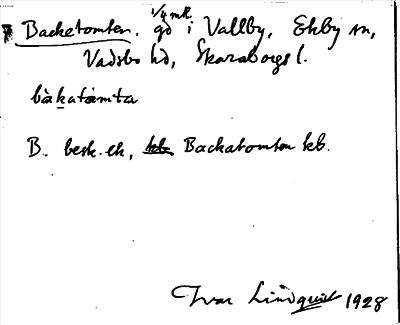 Backetomten. 1/4 mk. gd i Vallby, Ekby sn,
Vadsbo hd, Skaraborgs l.
bàkatåmta
B. besk. ek, kb Backatomten kb.
Ivar Lindquist 1928